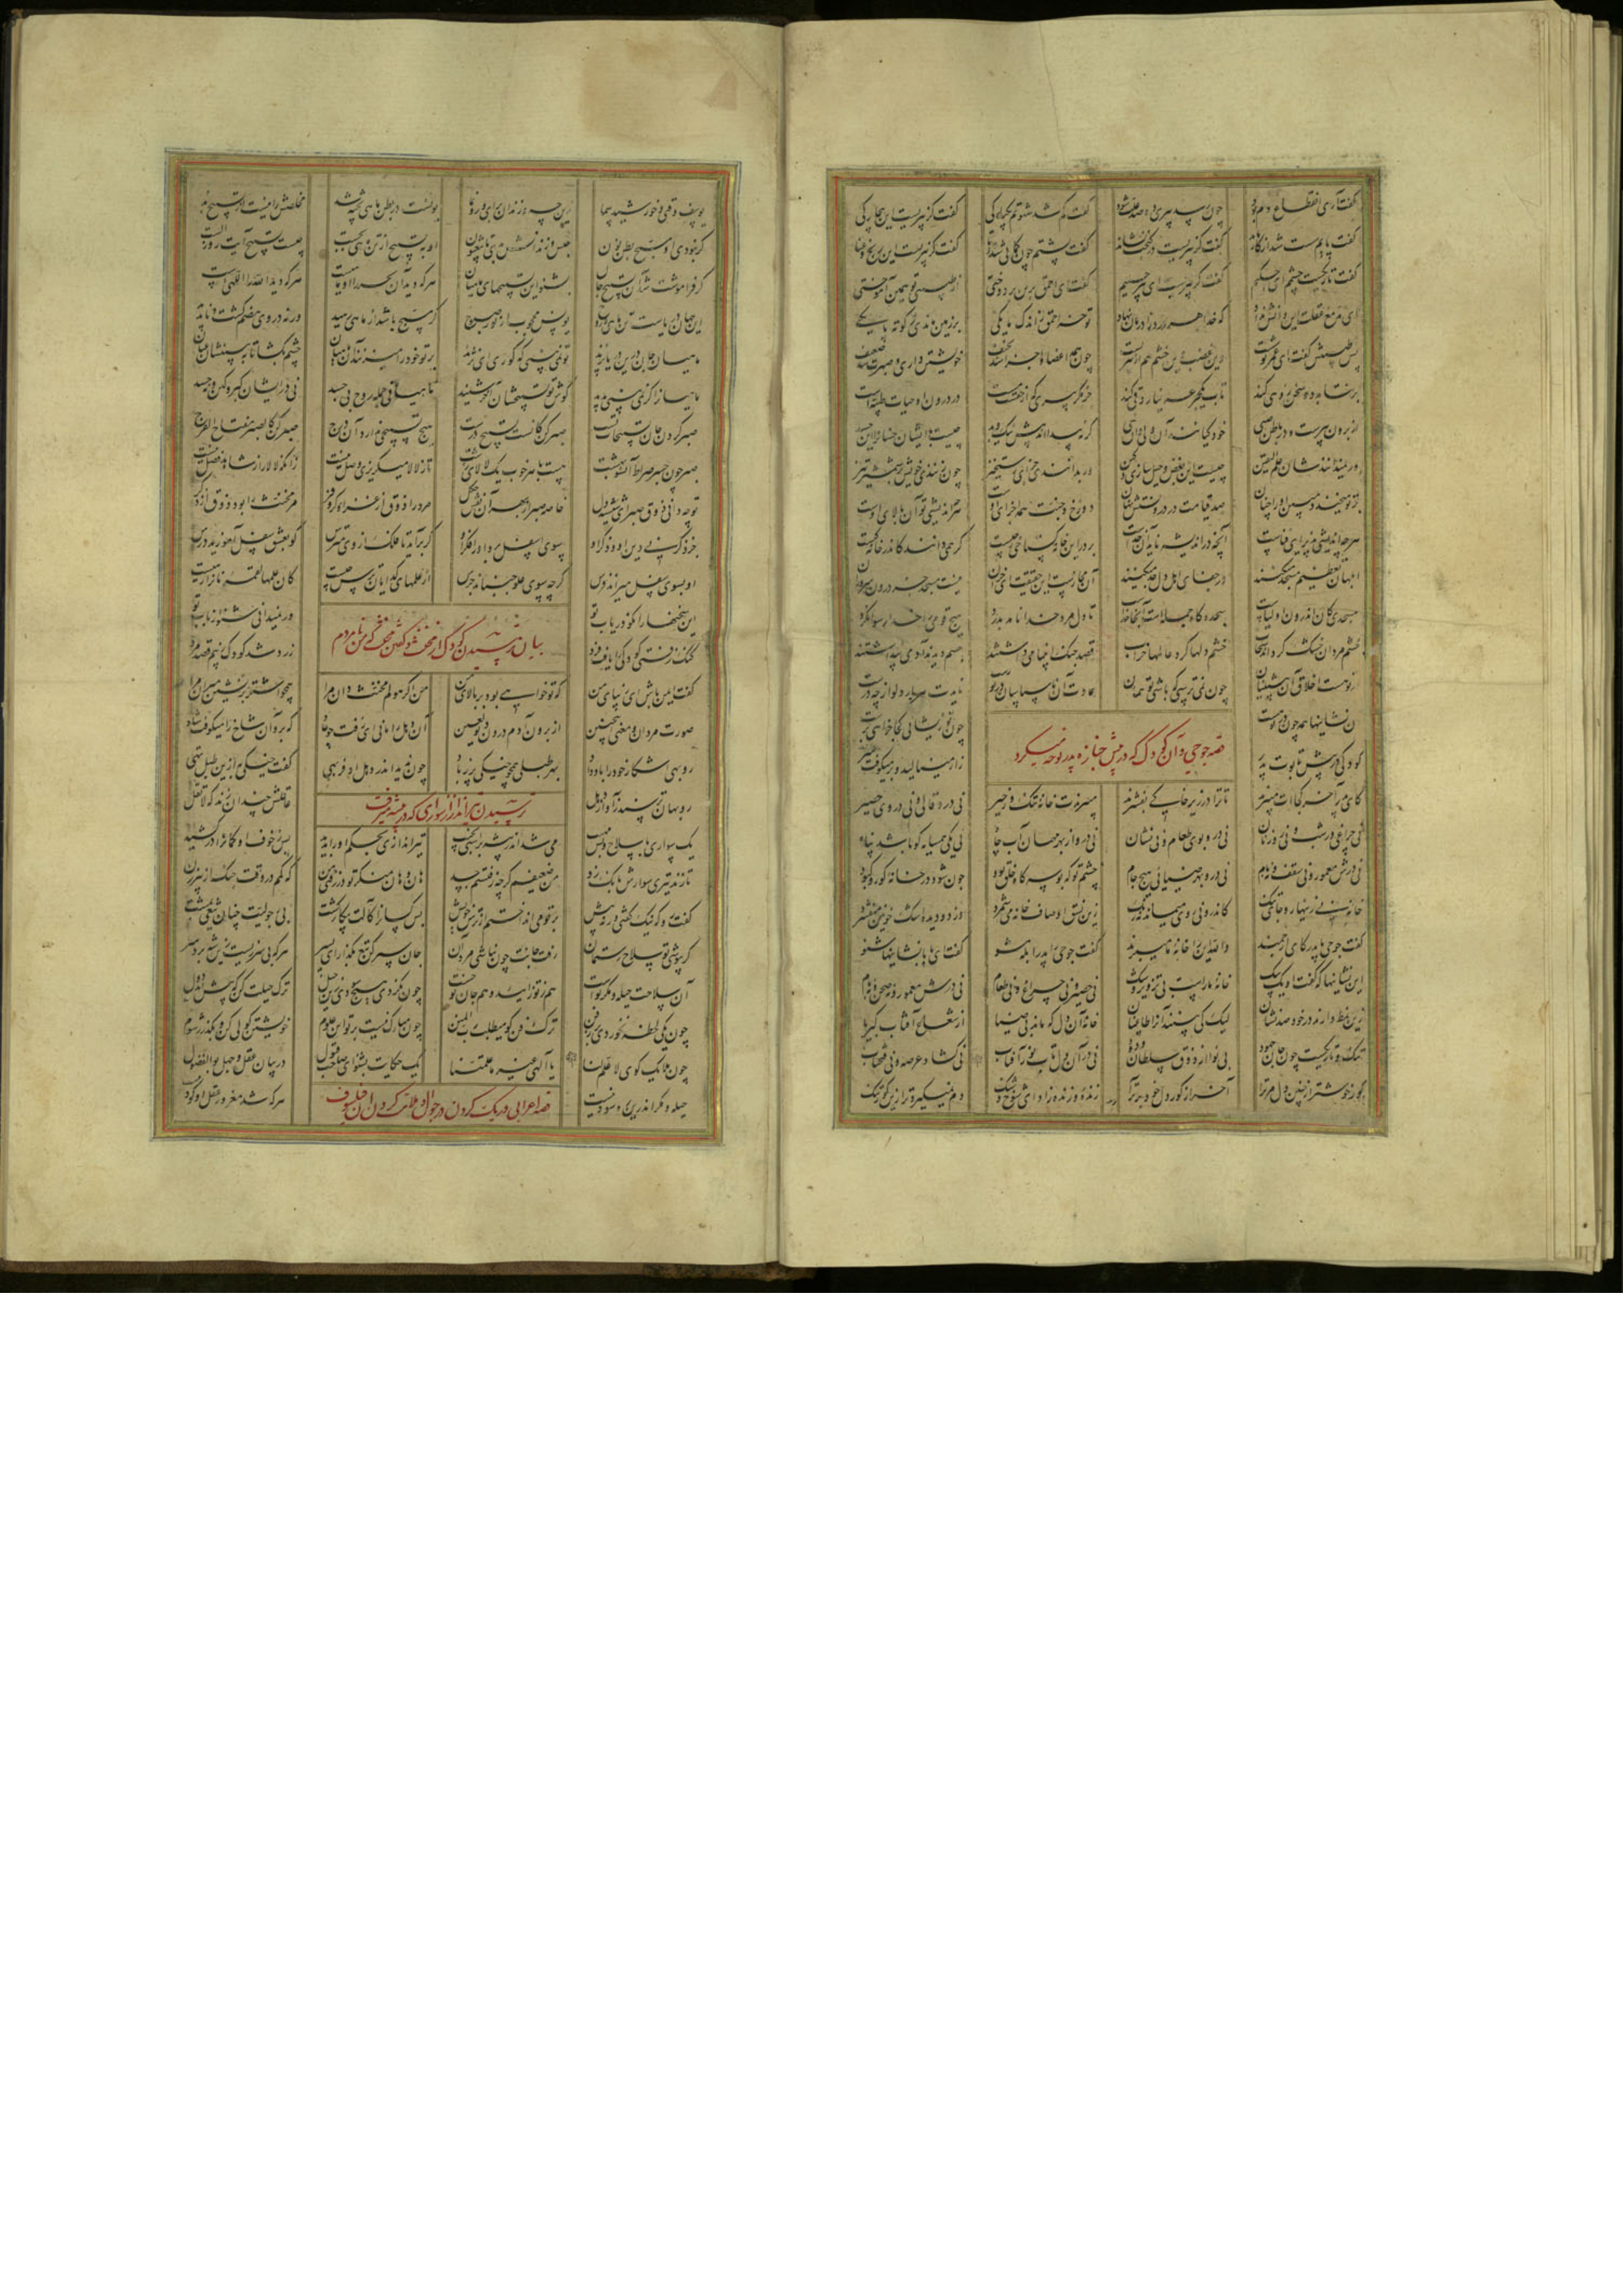 گفت آری انقطاع دم بود چون رسد پیری دو صد علت شود گفت کم شد شهوتم یکبارکی گفت کز پیریست این بیچارکی
گفت پایم سست شد از ره بماند گفت کز پیریست در کنجت نشاند گفت پشتم چون کمانی شد دوتا گفت کز پیریست این رنج و عنا
گفت تاریکست چشمم ای حکیم گفت کز پیریست ای پیر حلیم گفت ای احمق برین بر دوختی از طبیبی تو همین آموختی
ای مدمغ عقلت این دانش نداد که خدا هر درد را درمان نهاد تو خر احمق ز اندک مایکی بر زمین ماندی ز کوته پایکی
پس طبیبش گفت ای عمر تو شصت این غضب وین خشم هم از پیریست چون همه اعضا و اجزا شد نحیف خویشتن داری و صبرت شد ضعیف
برنتابد دو سخن زو هی کند تاب یک جرعه ندارد قی کند جز مگر پیری که از حقست مست در درون او حیات طیبه است
از برون پیرست و در باطن صبی خود کیانند آن ولی و آن نبی گر نه پیدااند پیش نیک و بد چیست با ایشان خسان را این حسد
ور نمیدانندشان علم الیقین چیست این بغض و حیل سازی و کین ور بدانندی جزای رستخیز چون زنندی خویش بر شمشیر تیز
بر تو میخندد مبین او را چنان صد قیامت در درونستش نهان دوزخ و جنت همه اجزای اوست هرچه اندیشی تو آن بالای اوست
هرچه اندیشی پذیرای فناست آنچه در اندیشه ناید آن خداست بر در این خانه کستاخی ز چیست گر همی دانند کاندر خانه کیست
ابلهان تعظیم مسجد میکنند در جفای اهل دل جد میکنند آن مجازست این حقیقت ای خران نیست مسجد جز درون سروران
مسجدی کان اندرون اولیاست سجده گاه جمله است آنجا خداست تا دل مرد خدا نامد بدرد هیچ قومی را خدا رسوا نکرد
خشم مردان خشک گرداند سحاب خشم دلها کرد عالمها خراب قصد جنک انبیا میداشتند جسم دیدند آدمی پنداشتند
در تو هست اخلاق آن پیشینیان چون نمی ترسی که باشی تو همان عادت آن ناسپاسان در تو رست نایدت هر بار دلو از چه درست
آن نشانیها همه چون در تو هست چون تو زیشانی کجا خواهی برست
قصه جوحی و آن کودک که در پیش جنازه پدر نوحه میکرد
کودکی در پیش تابوت پدر زار مینالید و بر میکوفت سر
کای پدر آخر کجاات میبرند تا ترا در زیر خاکی بفشرند میبرندت خانه تنک و زحیر نی درو قالی و نی در وی حصیر
نی چراغی در شب و نی روز نان نی درو بوی طعام و نی نشان نی درو از بهر مهمان آب چاه نی یکی همسایه کو باشد پناه
نی درش معمور و نی سقف و نه بام نی درو بهر ضیایی هیچ جام چشم تو که بوسه گاه خلق بود چون شود در خانه کور و کبود
خانه بی زینهار و جای تنک کاندرو نی روی میماند نه رنک زین نسق اوصاف خانه می شمرد وز دو دیده اشک خونین میفشرد
گفت جوحی با پدر کای ارجمند والله این را خانه ما میبرند گفت جوحی را پدر ابله مشو گفت ای بابا نشانیها شنو
این نشانیها که گفت او یک بیک خانه ما راست بی تزویر و شک نی حصیر و نی چراغ و نی طعام نی درش معمور و نی صحن و نه بام
زین نمط دارند در خود صد نشان لیک کی بینند آنرا طاغیان خانه آن دل که ماند بی ضیا از شعاع آفتاب کبریا
تنک و تاریکست چون جان جهود بی نوا از ذوق سلطان ودود نی در آن دل تاب نور آفتاب نی کشاد عرصه و نی فتح باب
گور خوشتر از چنین دل مر ترا آخر از کور دل خود برتر آ زنده و زنده زاد ای شوخ و شنک دم نمیکیرد ترا زین کور تنک
یوسف وقتی و خورشید سما زین چه و زندان برای و رو نما یونست در بطن ماهی پخته شد مخلصش را نیست از تسبیح بد
گر نبودی او مسبح بطن نون حبس و زندانش بدی تا یبعثون او بتسبیح از تن ماهی بجست چیست تسبیح آیت روز الست
گر فراموشت شد آن تسبیح جان بشنو این تسبیحهای ماهیان هرکه دید آن بحر را او ماهیست هرکه دید الله را اللهیست
این جهان دریاست تن ماهی و روح یونس محجوب از نور صبوح گر مسبح باشد از ماهی رهید ورنه در وی هضم گشت و ناپدید
ماهیان جان درین دریا پرند تو نمی بینی که کوری ای نژند بر تو خود را میزنند آن ماهیان چشم بکشا تا ببینیشان عیان
ماهیان را گر نمی بینی پدید گوش تو تسبیحشان آخر شنید ماهیانی جمله روح بی جسد نی در ایشان کبر و کین و حسد
صبر کردن جان تسبیحات تست صبر کن کانست تسبیح درست هیچ تسبیحی ندارد آن درج صبر کن کالصبر مفتاح الفرج
صبر چون جسر صراط آنسو بهشت هست با هر خوب یک لالای زشت تا ز لالا میکریزی وصل نیست زانکه لالا را ز شاهد فصل نیست
تو چه دانی ذوق صبر ای شیشه دل خاصه صبر از بهر آن نقش چکل مرد را ذوق از غزا و کر و فر مر مخنث را بود ذوق از ذکر
جز ذکر نی دین او و ذکر او سوی اسفل برد او را فکر او گر برآید تا فلک از وی مترس کو بعشق سفل آموزید درس
او بسوی سفل میراند فرس گرچه سوی علو جنباند جرس از علمهای گدایان ترس چیست کان علمها لقمه نانرا رهیست
این سخنها را نکو دریاب تو ور نمیدانی شنو
بیان ترسیدن کودک از مخنث و گفتن مخنث که من نامردم
کنک زفتی کودکی را یافت فرد زرد شد کودک ز بیم قصد مرد
گفت ایمن باش ای زیبای من که تو خواهی بود بر بالای من من گر هولم مخنث دان مرا همچو اشتر بر نشین میران مرا
صورت مردان و معنی این چنین از برون آدم درون دیو لعین آن دهل را مانی ای زفت چو عاد که برو آن شاخ را میکوفت باد
روبهی اشکار خود را باد داد بهر طبلی همچو خیکی پر ز باد چون ندید اندر دهل او فربهی گفت خیکی به ازین طبل تهی
روبهان ترسند ز آواز دهل عاقلش چندان زند که لا تقل
ترسیدن تیرانداز از سواری که در بیشه میرفت
یک سواری با سلاح و بس مهیب می شد اندر بیشه بر اسبی نجیب تیراندازی بحکم او را بدید پس ز خوف او کمانرا درکشید
تا زند تیری سوارش بانک زد من ضعیفم گرچه زفتستم جسد هان و هان منکر تو در زفتی من که کمم در وقت جنک از پیرزن
گفت رو که نیک گفتی ورنه نیش بر تو می انداختم از ترس خویش بس کسانرا کآلت پیکار کشت بی رجولیت چنان تیغی بمشت
گر بپوشی تو سلاح رستمان رفت جانت چون نباشی مرد آن جان سپر کن تیغ بگذار ای پسر هرکه بی سر بود ازین شه برد سر
آن سلاحت حیله و مکر تو است هم ز تو زایید و هم جان تو خست چون نکردی هیچ سودی زین حیل ترک حیلت کن که پیش آید دول
چون یکی لحظه نخوردی بر ز فن ترک فن کو میطلب رب المنن چون مبارک نیست بر تو این علوم خویشتن کولی کن و بگذر ز شوم
چون ملایک گوی لا علم لنا یا الهی غیر ما علمتنا یک حکایت بشنو ای صاحب قبول در بیان عقل و جهل بوالفضول
حیله و مکر اندرین ره سود نیست هرکه شد مغرور عقل او کودنیست
قصه اعرابی و ریک کردن در جوال و ملامت کردن آن فیلسوف